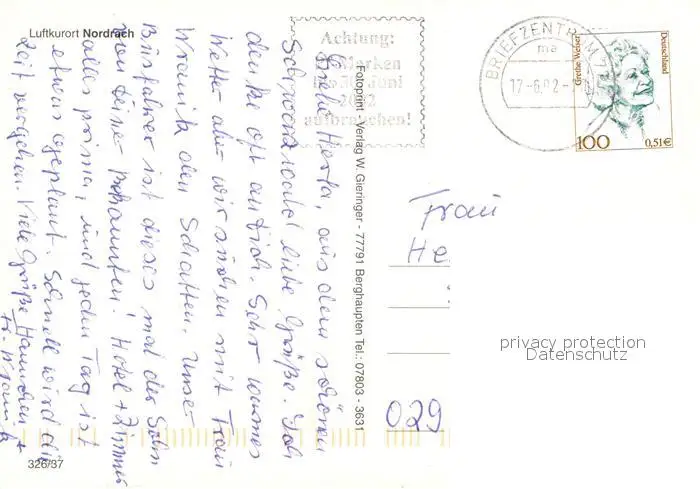 Luftkurort Nordrach
Achtung:
DM-Marken
bis 30. Juni
2002
aufbrauchen!
BRIEFZENTRUM 77
ma
17-6.02-
Grethe Weiser
Deutschland
100
0,51€
Liebe Herta, aus dem schönen
Schwarzwald liebe Grüße. Ich
denke oft an Dich. Sehr warmes
Wetter aber wir suchen mit Frau
Wramik den Schatten. Unser
Busfahrer ist dieses mal der Sohn
von Deiner Bekannten. Hotel + Zimmer
alles prima, und jeden Tag ist
etwas geplant. Schnell wird die
Zeit vergehen. Viele Grüße Hannchen
+ Fr. Wramik
Fotoprint - Verlag W. Gieringer - 77791 Berghaupten Tel.: 07803 - 3631
Frau
He
029
privacy protection
Datenschutz
326/37